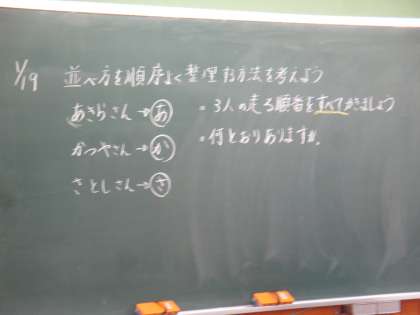 1/19 並べ方を順序よく整理する方法を考えよう
あきらさん→あ ・3人の走る順番をすべてかきましょう
かつやさん→か ・何とおりありますか。
さとしさん→さ